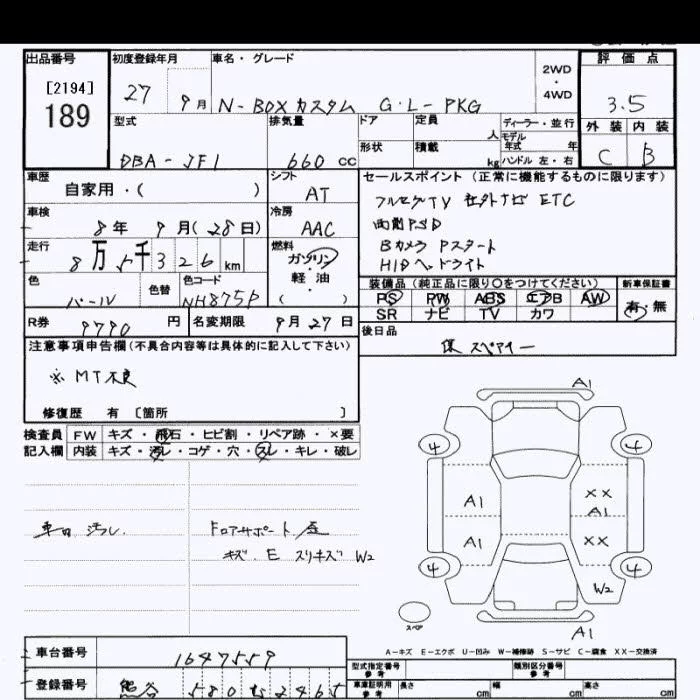 出品番号
[2194]
189
初度登録年月
27 9月
車名・グレード
N-BOXカスタム G・L-PKG
2WD
・
4WD
評価点
3.5
外装 内装
C B
型式
DBA-JF1
排気量
660 cc
ドア
定員
人
ディーラー・並行
モデル
年式 年
形状
積載
kg
ハンドル 左・右
車歴
自家用・( )
シフト
AT
セールスポイント (正常に機能するものに限ります)
フルセグTV 社外ナビ ETC
両側PSD
Bカメラ Pスタート
HIDヘッドライト
車検
8年 9月(28日)
冷房
AAC
走行
8万5千326km
燃料
ガソリン
・
軽油
( )
色
パール
色替
色コード
NH875P
装備品 (純正品に限り○をつけてください)
PS PW ABS エアB AW
SR ナビ TV カワ
新車保証書
有・無
R券 9770円
名変期限 9月27日
後日品
保 スペアキー
注意事項申告欄(不具合内容等は具体的に記入して下さい)
※ MT不良
修復歴 有 [箇所 ]
検査員
記入欄
FW キズ・飛石・ヒビ割・リペア跡・×要
内装 キズ・汚レ・コゲ・穴・スレ・キレ・破レ
車内 汚レ.
ドロアサポート/座
キズ. E スリキズ W2
A1
4 4
A1 XX
A1
A1 XX
4 4
W2
スペア
A1
A-キズ E-エクボ U-凹み W-補修跡 S-サビ C-腐食 XX-交換済
車台番号
1647559
登録番号
熊谷 580 む 2465
型式指定番号
参考
類別区分番号
参考
車庫証明用
参考
長さ cm 幅 cm 高さ cm